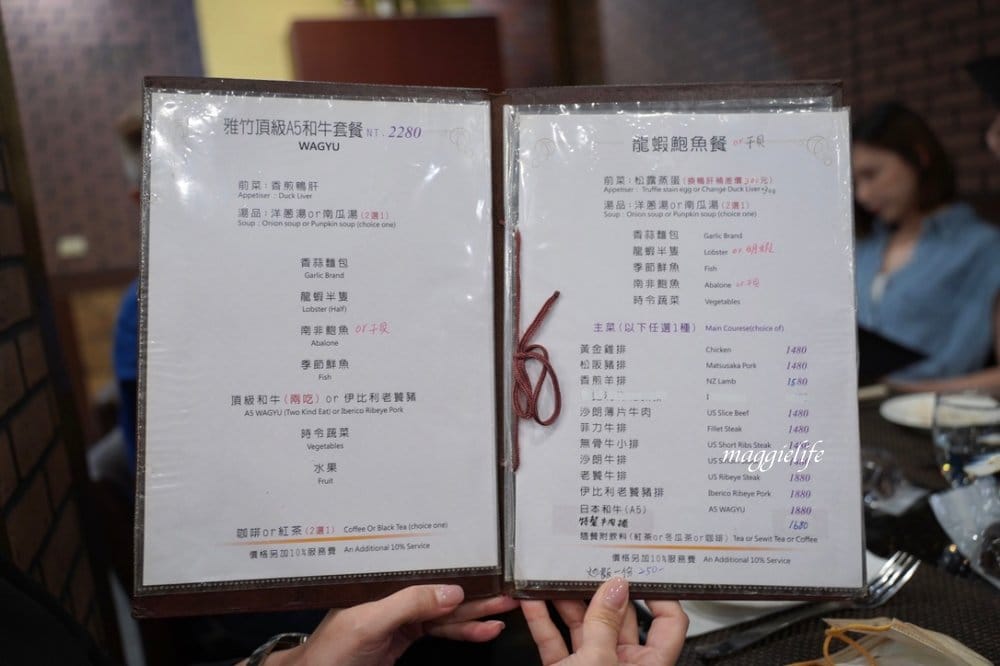 雅竹頂級A5和牛套餐 NT. 2280
WAGYU
前菜：香煎鴨肝
Appetiser : Duck Liver
湯品：洋蔥湯or南瓜湯(2選1)
Soup : Onion soup or Punpkin soup (choice one)
香蒜麵包
Garlic Brand
龍蝦半隻
Lobster (Half)
南非鮑魚 or干貝
Abalone
季節鮮魚
Fish
頂級和牛(兩吃) or 伊比利老饕豬
A5 WAGYU (Two Kind Eat) or Iberico Ribeye Pork
時令蔬菜
Vegetables
水果
Fruit
咖啡or紅茶(2選1) Coffee Or Black Tea (choice one)
價格另加10%服務費 An Additional 10% Service
龍蝦鮑魚餐 or干貝
前菜：松露蒸蛋(換鴨肝補差價300元)
Appetiser : Truffle stain egg or Change Duck Liver 300
湯品：洋蔥湯or南瓜湯(2選1)
Soup : Onion soup or Punpkin soup (choice one)
香蒜麵包 Garlic Brand
龍蝦半隻 Lobster or明蝦
季節鮮魚 Fish
南非鮑魚 Abalone or干貝
時令蔬菜 Vegetables
主菜(以下任選1種) Main Courese(choice of)
黃金雞排 Chicken 1480
松阪豬排 Matsusaka Pork 1480
香煎羊排 NZ Lamb 1580
沙朗薄片牛肉 US Slice Beef 1480
菲力牛排 Fillet Steak 1480
無骨牛小排 US Short Ribs Steak 1480
沙朗牛排 US
老饕牛排 US Ribeye Steak 1880
伊比利老饕豬排 Iberico Ribeye Pork 1880
日本和牛(A5) A5 WAGYU 1880
特製牛肉捲 1680
隨餐附飲料(紅茶or冬瓜茶or咖啡) Tea or Sewit Tea or Coffee
價格另加10%服務費 An Additional 10% Service
炒飯一份 250-
maggielife